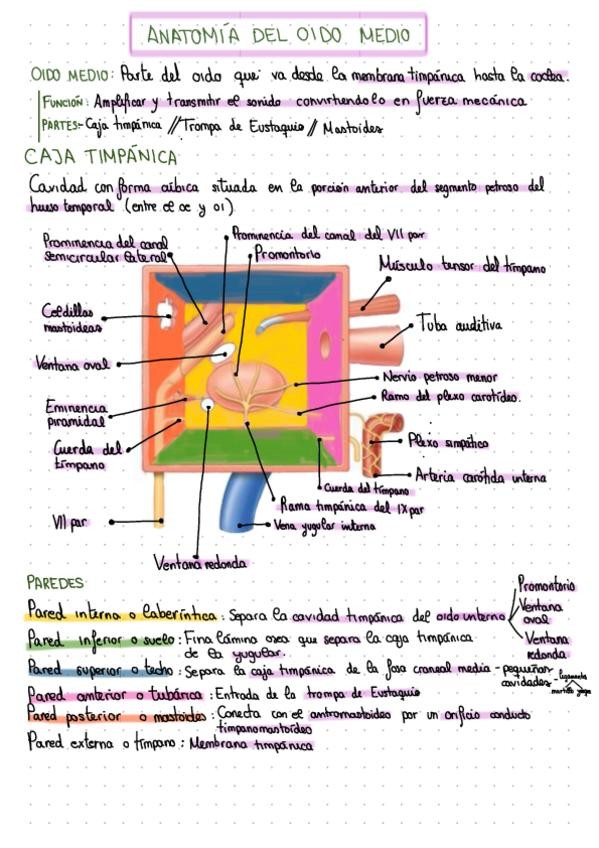 ANATOMÍA DEL OIDO MEDIO
OIDO MEDIO: Parte del oido que va desde la membrana timpánica hasta la coclea.
FUNCIÓN: Amplificar y transmitir el sonido convirtiendolo en fuerza mecánica
PARTES:- Caja timpánica // Trompa de Eustaquio // Mastoides
CAJA TIMPÁNICA
Cavidad con forma cúbica situada en la porción anterior del segmento petroso del
hueso temporal (entre el oe y oi)
Prominencia del canal
semicircular lateral
Prominencia del canal del VII par
Promontorio
Músculo tensor del tímpano
Celdillas
mastoideas
Tuba auditiva
Ventana oval
Nervio petroso menor
Ramo del plexo carotídeo.
Eminencia
piramidal
Cuerda del
tímpano
Plexo simpático
Arteria carótida interna
Cuerda del tímpano
Rama timpánica del IX par
VII par
Vena yugular interna
Ventana redonda
PAREDES
Pared interna o laberíntica: Separa la cavidad timpánica del oido interno
Promontorio
Ventana
oval
Ventana
redonda
Pared inferior o suelo: Fina lámina osea que separa la caja timpánica
de la yugular.
Pared superior o techo: Separa la caja timpánica de la fosa craneal media - pequeñas
cavidades - ligamento
martillo yunque
Pared anterior o tubárica: Entrada de la trompa de Eustaquio
Pared posterior o mastoides: Conecta con el antromastoideo por un orificio conducto
timpanomastoídeo
Pared externa o tímpano: Membrana timpánica